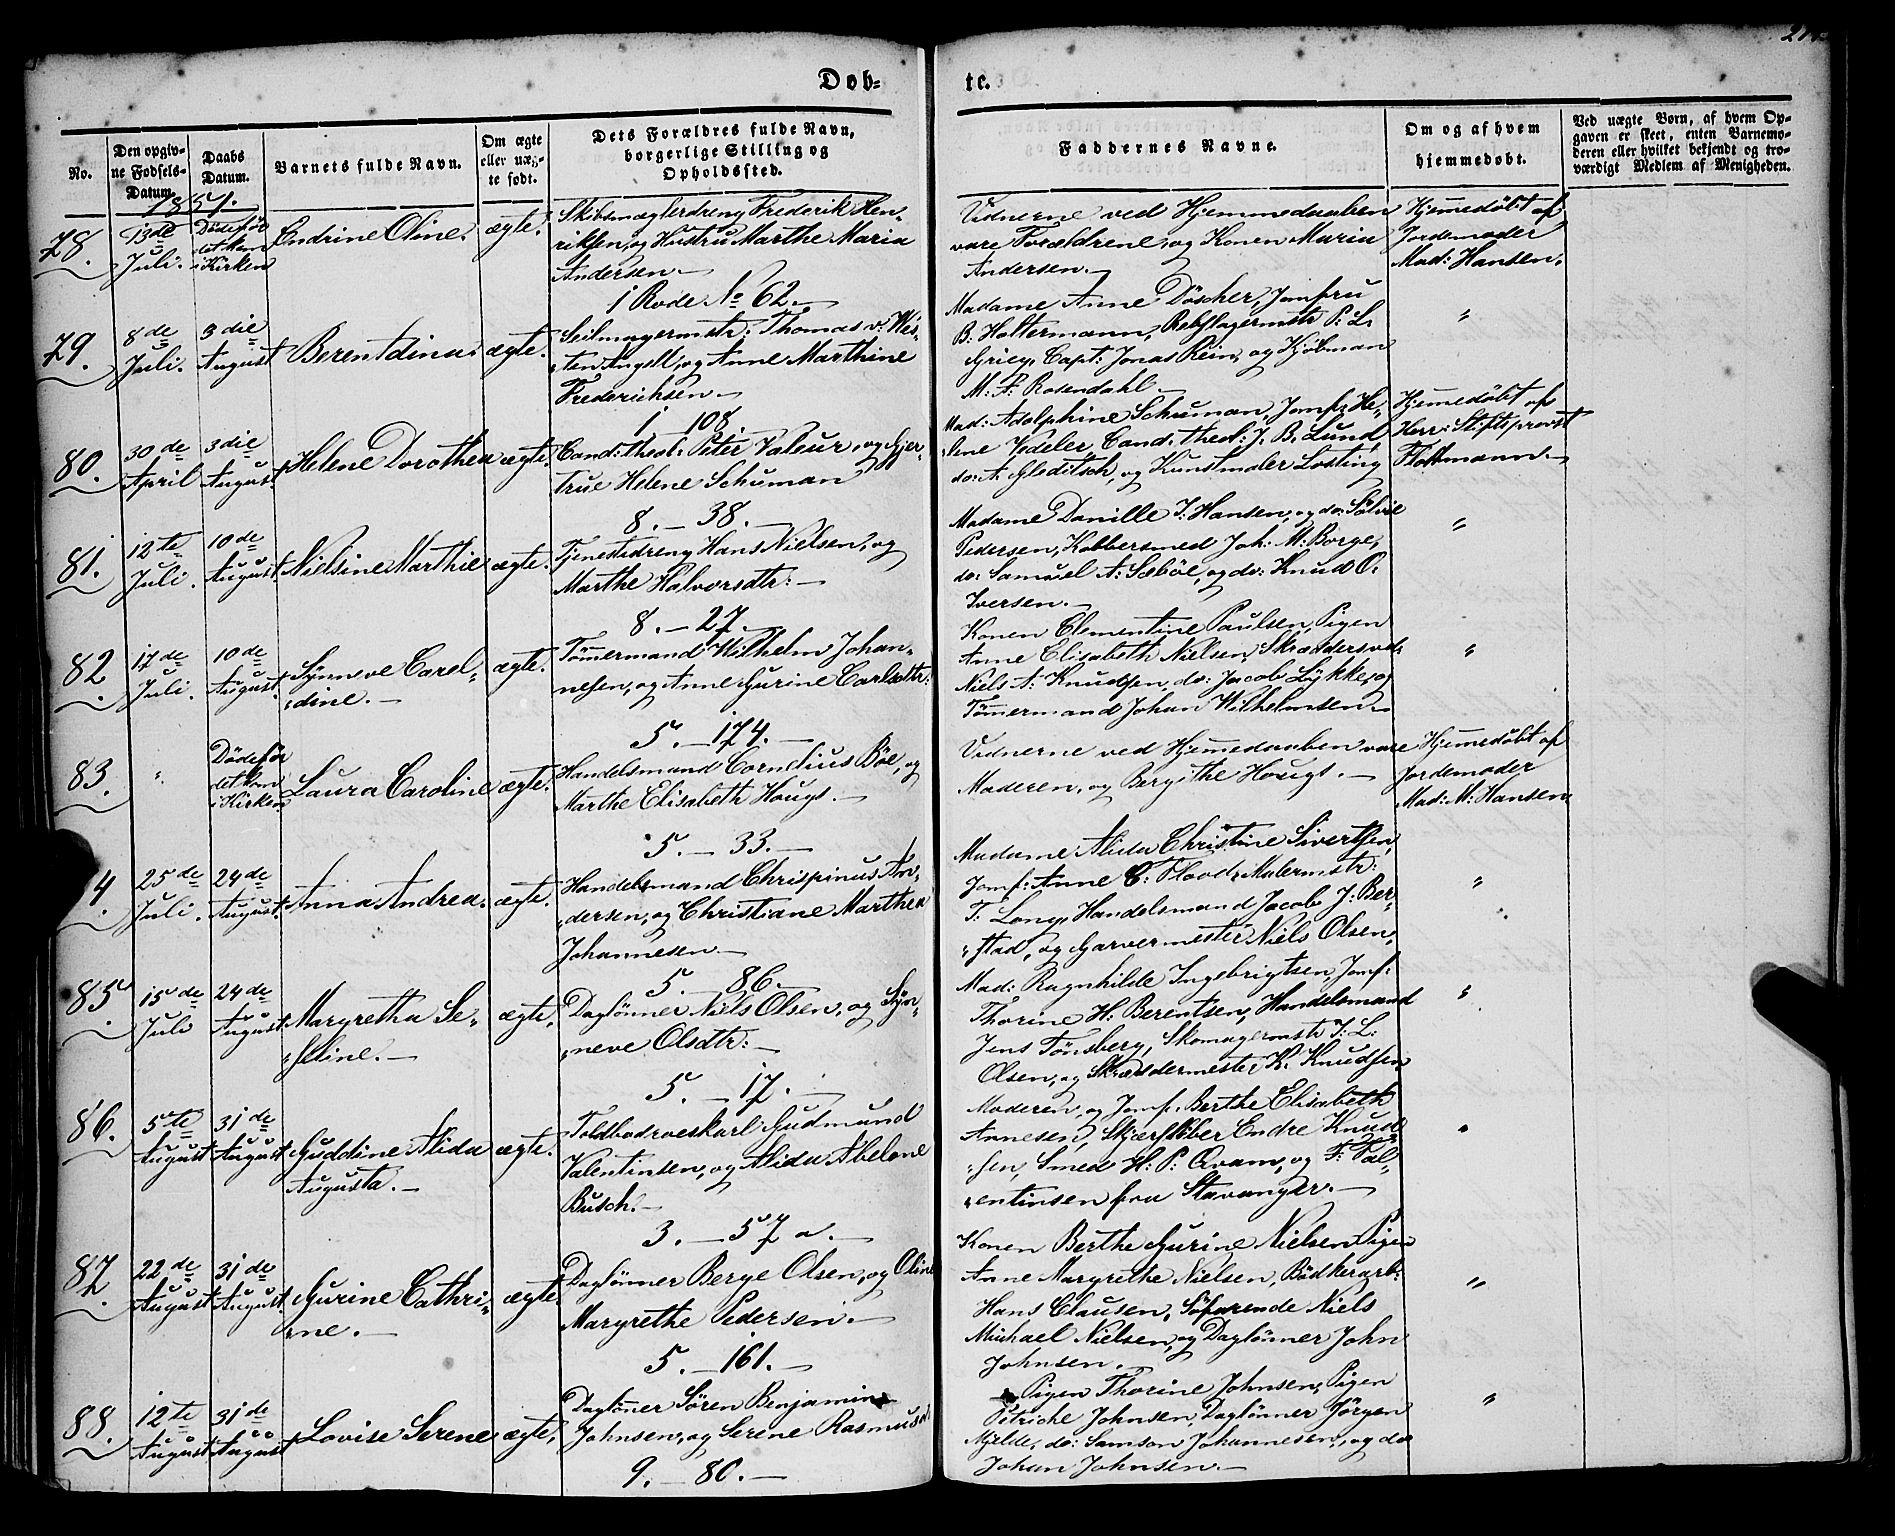 Døb-
te.
No.
Den opgiv-
ne Fødsels-
Datum.
Daabs
Datum.
Barnets fulde Navn.
Om ægte
eller uæg-
te født.
Dets Forældres fulde Navn,
borgerlige Stilling og
Opholdssted.
Faddernes Navne.
Om og af hvem
hjemmedøbt.
Ved uægte Børn, af hvem Op-
gaven er skeet, enten Barnemo-
deren eller hvilket bekjendt og tro-
værdigt Medlem af Menigheden.
78.
13de
Juli.
Døde før
det kom
i Kirken
Endrine Oline.
ægte.
Skibsmæglerdreng Frederik Hen-
riksen, og Hustru Marthe Maria
Andersen.
1 Rode No 62.
Vidnerne ved Hjemmedaaben
vare Forældrene, og Konen Maria
Andersen.
Hjemedöbt af
Jordemoder
Mad: Hansen.
79.
8de
Juli.
3die
August
Berentdina.
ægte.
Seilmagermstr: Thomas v: Wes-
ten Angell, og Anne Marthine
Frederichsen
1 108.
Madame Anne Döscher, Jomfru
B. Holtermann, Rebslagermstr P: L.
Grieg, Capt: Jonas Rein, og Kjöbman
M. F. Rosendahl.
"
80.
30de
April
3die
August.
Helene Dorothea
ægte.
Cand: theol: Peter Valeur, og Gjer-
true Helene Schuman
8. 38.
Mad: Adolphine Schuman, Jomf: He-
lene Vedeler, Cand. theol: J. B. Lund,
do: A. Gleditsch, og Kunstmaler Losting
Hjemedöbt af
Herr: Stiftsprovst
Flottmann.
81.
12te
Juli.
10de
August
Nielsine Marthie
ægte.
Tjenestedreng Hans Nielsen, og
Marthe Halvorsdtr:
8. 27.
Madame Danille J: Hansen, og do: Sölvie
Pedersen, Kobbersmed Joh: M: Borge,
do: Samuel A: Sæböe, og do: Knud O.
Iversen.
"
82.
17de
Juli.
10de
August.
Synneve Carel-
dine.
ægte.
Tömermand Wilhelm Johan-
nesen, og Anne Gurine Carlsdtr:
5. 174.
Konen Clementine Paulsen, Pigen
Anne Elisabeth Nielsen, Skræddersvd:
Niels A: Knudsen, do: Jacob Lykke, og
Tömermand Johan Wilhelmsen
"
83.
"
Döde för
det kom
i Kirken
Laura Caroline
ægte.
Handelsmand Cornelius Böe, og
Marthe Elisabeth Hougs.
5. 33.
Vidnerne ved Hjemedaaben vare
Moderen, og Bergithe Hougs.
Hjemedöbt af
Jordemoder
Mad: M: Hansen
4.
25de
Juli.
24de
August.
Anna Andrea.
ægte.
Handelsmand Chrispinus An-
dersen, og Christiane Marthea
Johannesen
5. 86.
Madame Alida Christine Sivertsen,
Jomf: Anne C: Flood, Malermstr:
T: Long, Handelsmand Jacob J: Ber-
stad, og Garvermester Niels Olsen,
"
85.
15de
Juli
24de
August
Margretha Se-
seline.
ægte.
Daglönner Niels Olsen, og Syn-
neve Olsdtr:
5. 17.
Mad: Ragnhilde Ingebrigtsen, Jomf:
Thorine H: Berentsen, Handelsmand
Jens Tönsberg, Skomagermstr J: L:
Olsen, og Skræddermester K. Knudsen
"
86.
5te
August
31de
August
Guddine Alida
Augusta.
ægte.
Toldbodroeskarl Gudmund
Valentinsen, og Alida Abelone
Busch.
3. 57 a.
Moderen, og Jomf. Berthe Elisabeth
Annesen, Skjærsliber Endre Knud
sen, Smed H: P: Qvam, og F: Val-
entinsen fra Stavanger.
"
87.
22de
August
31de
August.
Gurine Cathri-
ne.
ægte.
Daglönner Berge Olsen, og Oline
Margrethe Pedersen.
5. 161.
Konen Berthe Gurine Nielsen, Pigen
Anne Margrethe Nielsen, Bödkerarb:
Hans Clausen, Söfarende Niels
Michael Nielsen, og Daglönner John
Johnsen.
"
88.
12te
August
31de
August
Lovise Serene
ægte.
Daglönner Sören Benjamin
Johnsen, og Serine Rasmusd:
9. 80.
Pigen Thorine Johnsen, Pigen
Petriche Johnsen, Daglönner Jörgen
Mjelde, do: Samson Johannesen, og do
Johan Johnsen.
"